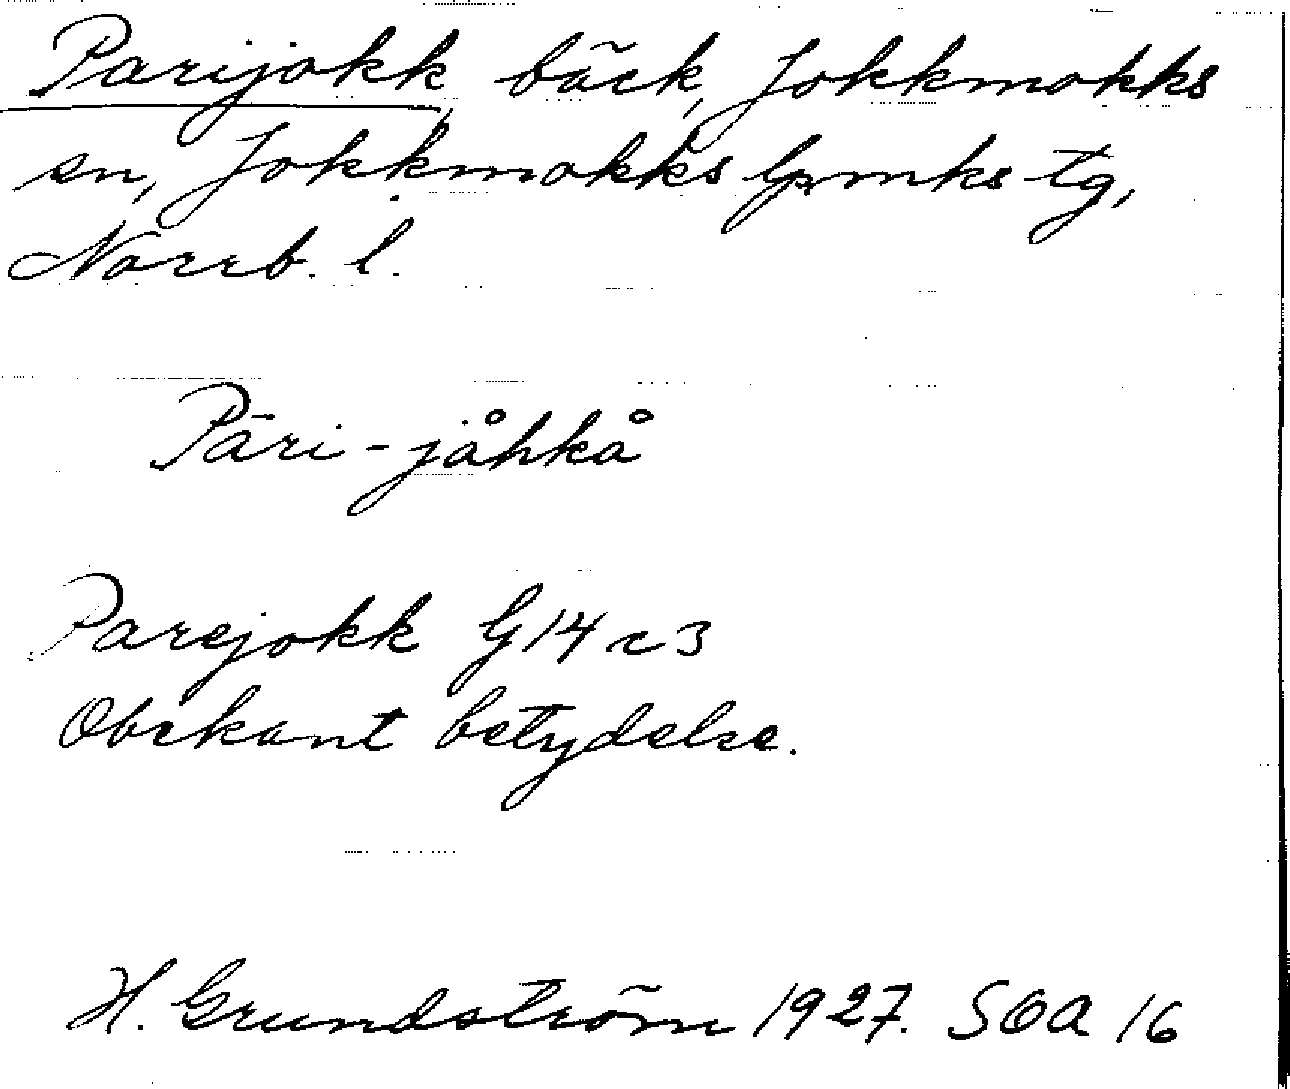 Parijokk, bäck, Jokkmokks
sn, Jokkmokks lpmks tg,
Norrb. l.
Pāri-jåhkå
Parejokk G14 c3
Obekant betydelse.
H. Grundström 1927. SOA 16